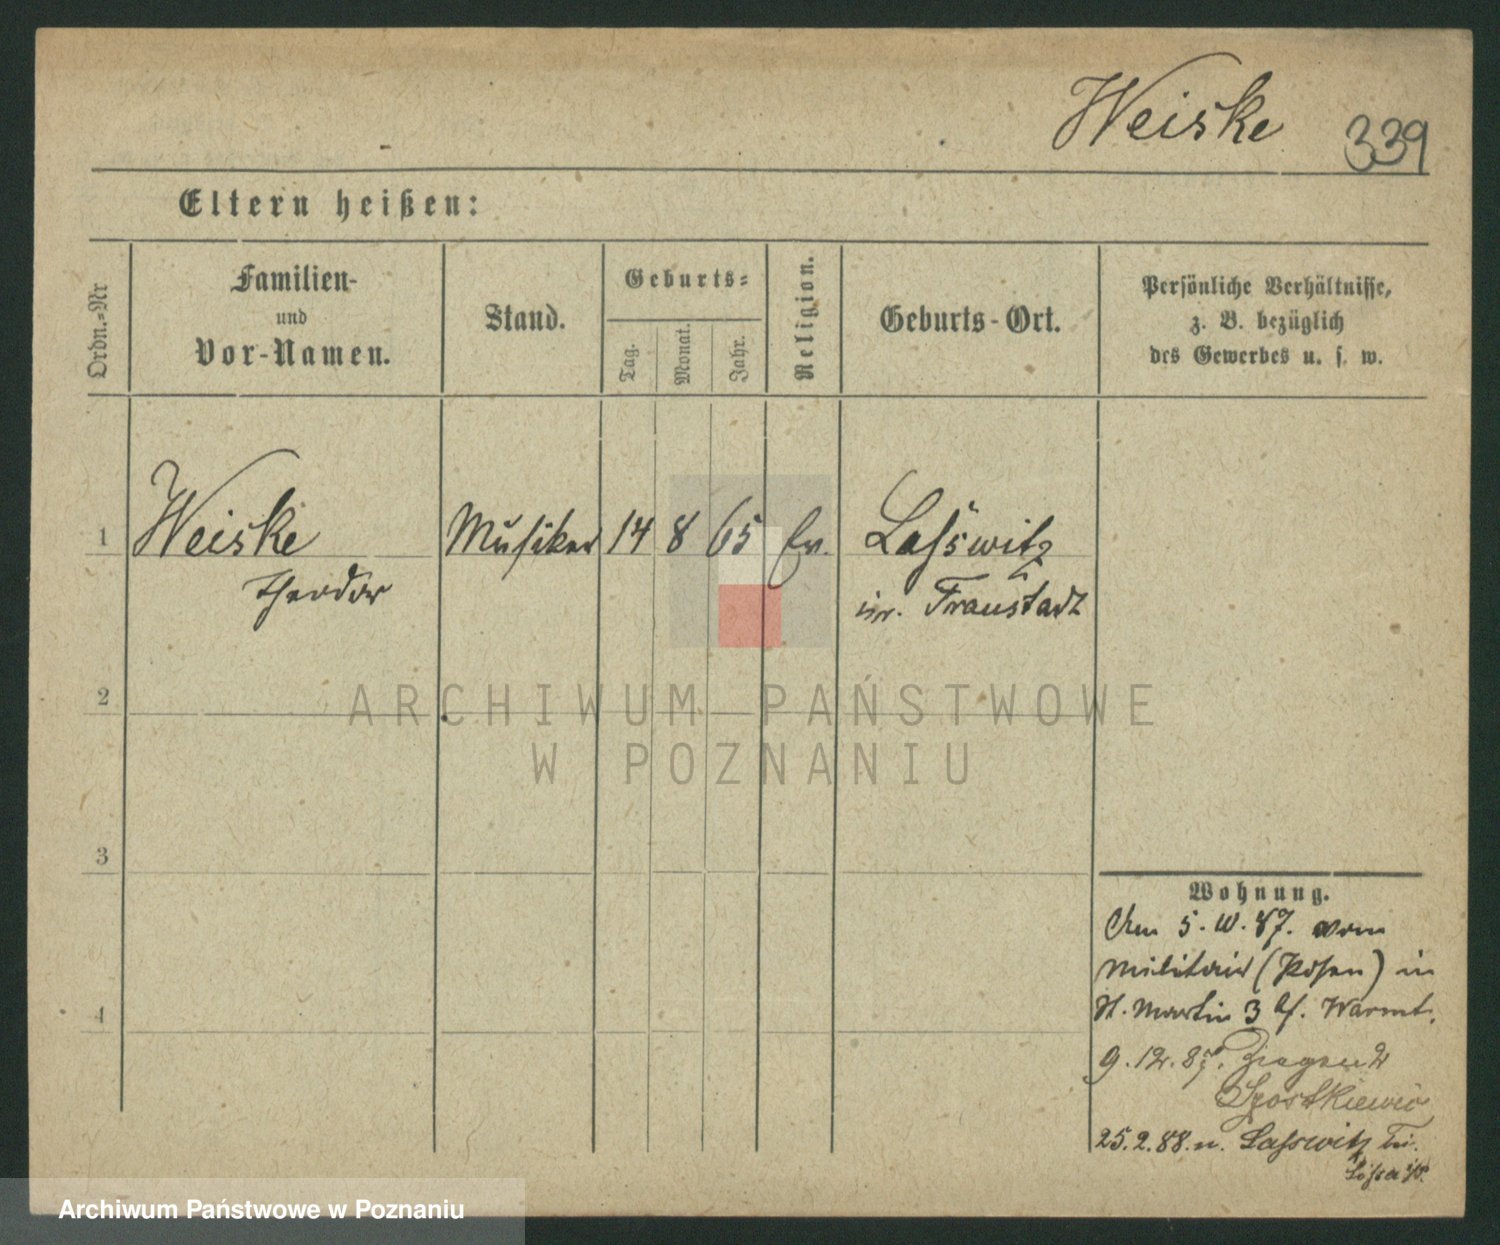 Weiske 339
Eltern heißen:
Ordn.-Nr
Familien-
und
Vor-Namen.
Stand.
Geburts-
Tag.
Monat.
Jahr.
Religion.
Geburts-Ort.
Persönliche Verhältnisse,
z. B. bezüglich
des Gewerbes u. s. w.
1 Weiske Musiker 14 8 65 Ev. Lasswitz
Theodor Kr. Fraustadt
2
3
4
Wohnung.
Den 5. 10. 87. vom
Militair (Posen) in
St. Martin 3 b/. Warmt.
9. 12. 87. Ziegenstr
25. 2. 88. n. Lasswitz bei
Lissa
ARCHIWUM PAŃSTWOWE
W POZNANIU
Archiwum Państwowe w Poznaniu